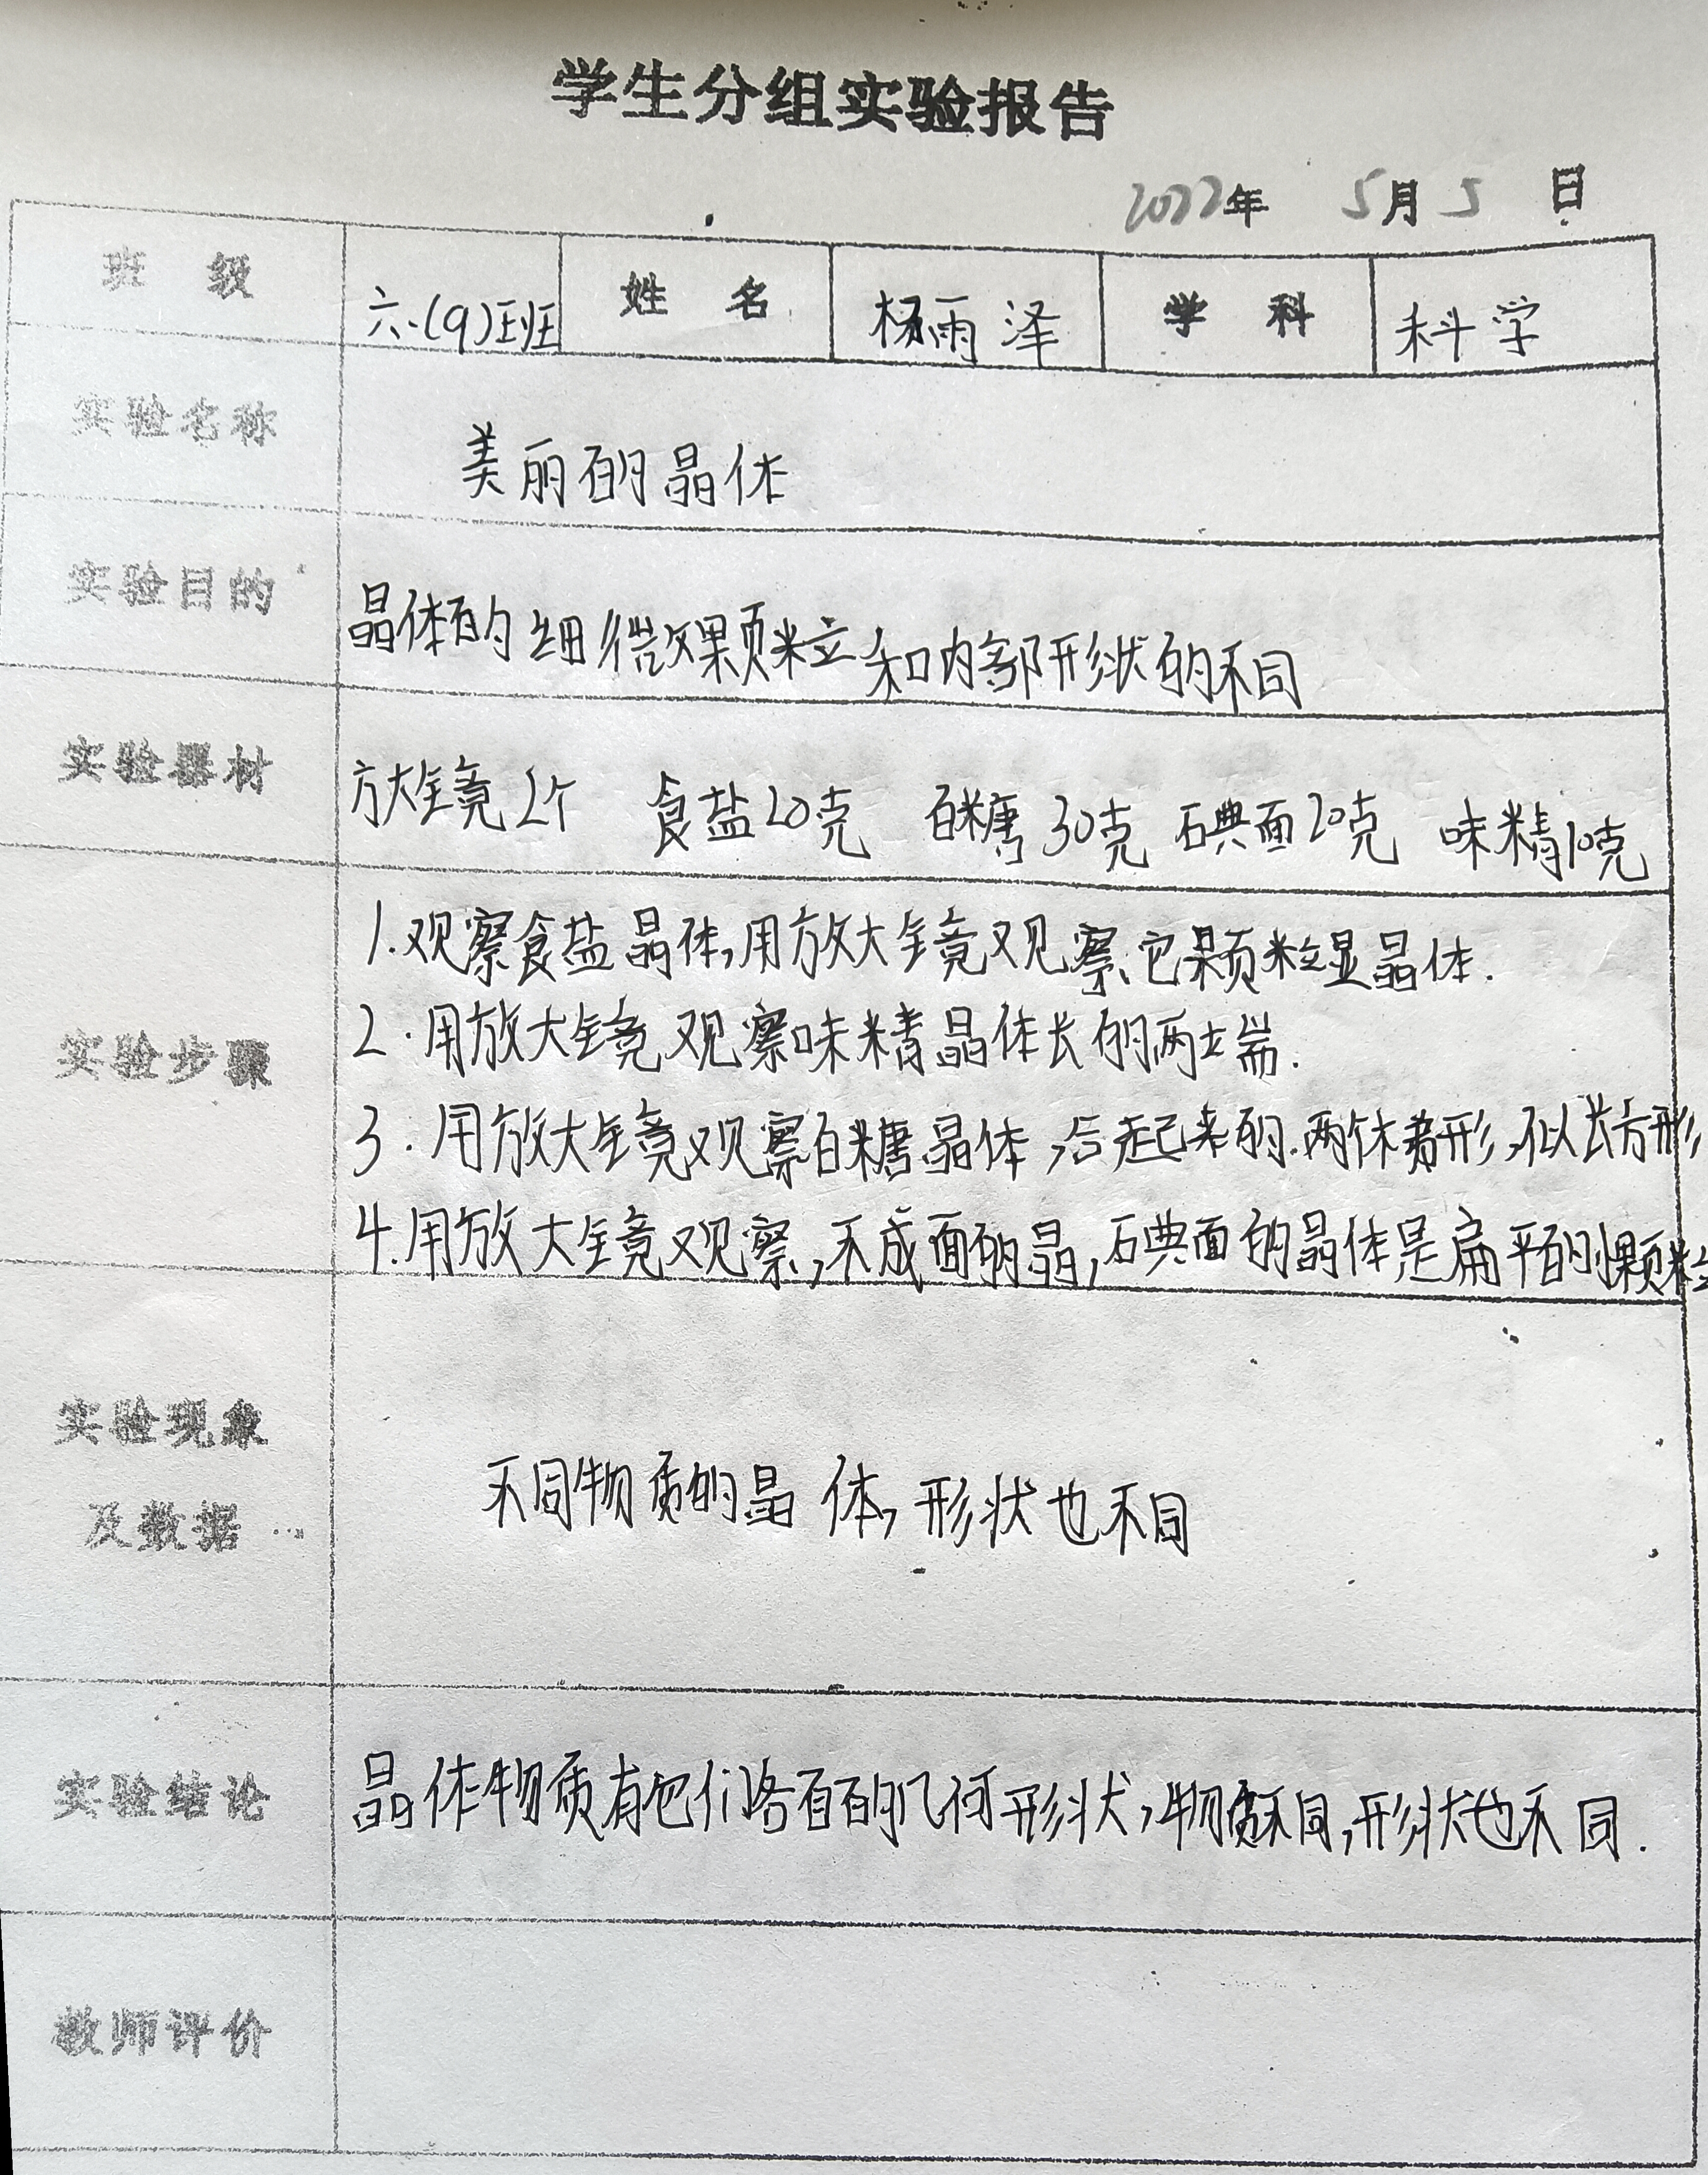 学生分组实验报告
2022年 5月5日
班级 六.(9)班 姓名 杨雨泽 学科 科学
实验名称 美丽的晶体
实验目的 晶体的细微颗粒和内部形状的不同
实验器材 放大镜2个 食盐20克 白糖30克 碘面20克 味精10克
实验步骤
1.观察食盐晶体,用放大镜观察,它颗粒显晶体.
2.用放大镜观察味精晶体长的两端.
3.用放大镜观察白糖晶体,后起来的.两体着形,似长方形
4.用放大镜观察,不成面的晶,碘面的晶体是扁平的颗粒
实验现象
及数据 不同物质的晶体,形状也不同
实验结论 晶体物质有它们各自的几何形状,物质不同,形状也不同.
教师评价